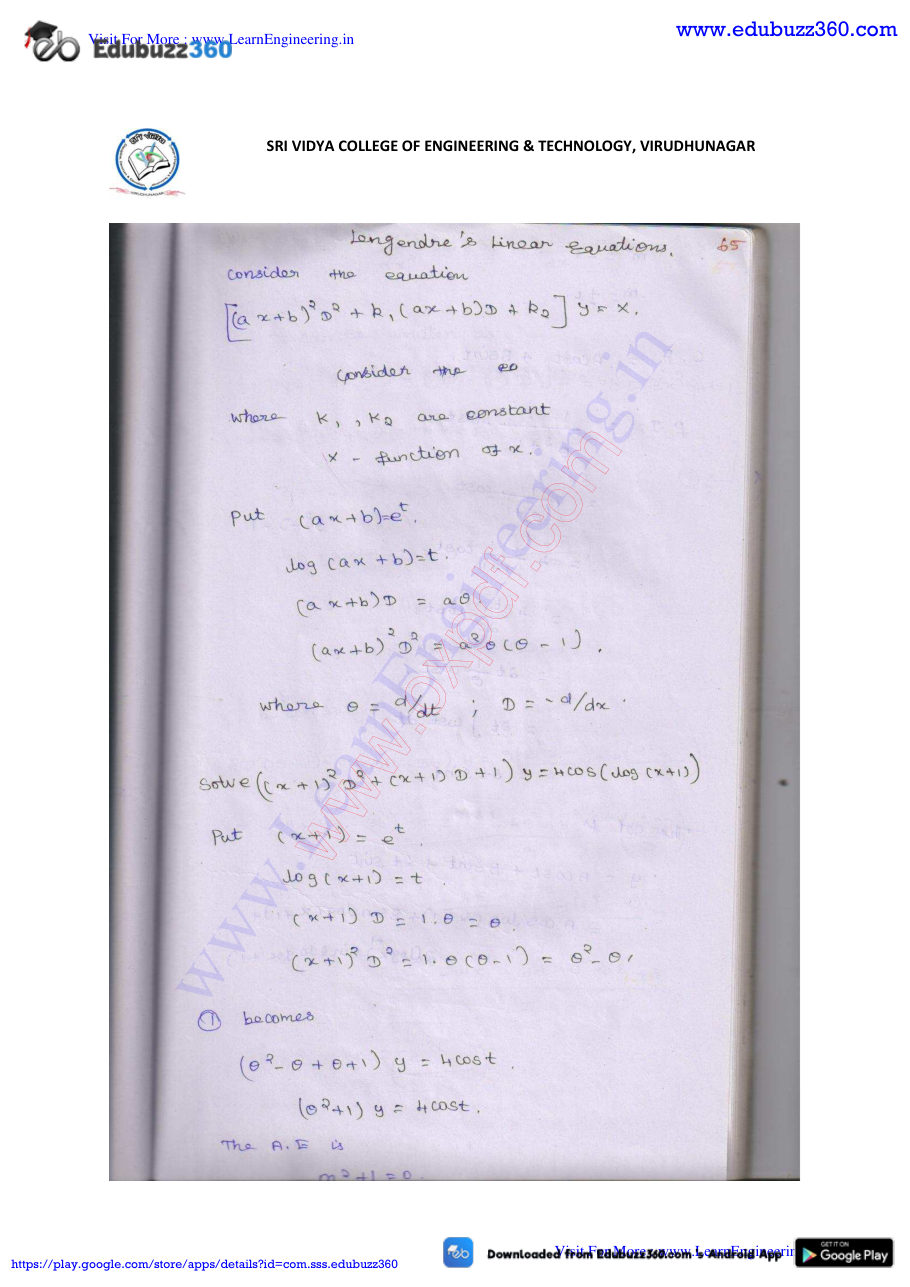 Visit For More : www.LearnEngineering.in
Edubuzz360
www.edubuzz360.com
SRI VIDYA COLLEGE OF ENGINEERING & TECHNOLOGY, VIRUDHUNAGAR
VIRUDHUNAGAR
Lengendre's Linear equations. 65
consider the equation
[(ax+b)² D² + k₁(ax+b)D + k₂] y = x.
Consider the eo
where K₁, K₂ are constant
X - function of x.
Put (ax+b)=eᵗ.
log(ax+b)=t.
(ax+b)D = aθ.
(ax+b)²D² = a²θ(θ-1).
where θ = d/dt ; D = -d/dx.
Solve ((x+1)²D²+(x+1)D+1) y=4cos(log(x+1))
Put (x+1) = eᵗ.
log(x+1) = t.
(x+1) D = 1.θ = θ.
(x+1)²D² = 1.θ(θ-1) = θ²-θ,
① becomes
(θ²-θ+θ+1) y = 4cost.
(θ²+1) y = 4cost.
The A.E is
m²+1=0.
www.LearnEngineering.in
www.5xpdf.com
https://play.google.com/store/apps/details?id=com.sss.edubuzz360
Downloaded from Edubuzz360.com 's Android App
Visit For More : www.LearnEngineerin
GET IT ON
Google Play